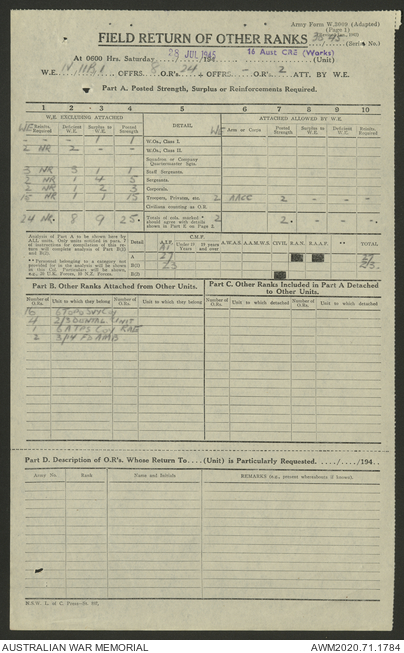 Army Form W.3009 (Adapted)
(Page 1)
FIELD RETURN OF OTHER RANKS
(Serial No.)
At 0600 Hrs. Saturday 28 JUL 1945 16 Aust CRE (Works) (Unit)
W.E. OFFRS. 8 O.R's. 24 + OFFRS. - O.R's. 2 ATT. BY W.E.
Part A. Posted Strength, Surplus or Reinforcements Required.
1 2 3 4 5 6 7 8 9 10
W.E. EXCLUDING ATTACHED DETAIL ATTACHED ALLOWED BY W.E.
Reins. Required Deficient W.E. Surplus to W.E. Posted Strength W.E. Arm or Corps Posted Strength Surplus to W.E. Deficient W.E. Reins. Required
- - 1 1 W.Os., Class I.
2 NR 2 - - W.Os., Class II.
Squadron or Company Quartermaster Sgts.
3 NR 3 1 1 Staff Sergeants.
2 NR 1 4 5 Sergeants.
2 NR 1 2 3 Corporals.
15 NR 1 1 15 Troopers, Privates, etc. 2 AACC 2 - - -
Civilians counting as O.R.
24 NR. 8 9 25. Totals of cols. marked * should agree with details shown in Part E on Page 2. 2 2. - - -
Analysis of Part A to be shown here by ALL units.
Detail A.I.F. C.M.F. Under 19 Years 19 years and over A.W.A.S. A.A.M.W.S. CIVIL R.A.N. R.A.A.F. ** TOTAL
A 27 27
B(i) 23 23.
B(ii)
** Personnel belonging to a category not provided for in the analysis will be shown in this Col. Particulars will be shown, e.g., 20 U.K. Forces, 10 N.Z. Forces.
Part B. Other Ranks Attached from Other Units.
Part C. Other Ranks Included in Part A Detached to Other Units.
Number of O.Rs. Unit to which they belong Number of O.Rs. Unit to which they belong Number of O.Rs. Unit to which detached Number of O.Rs. Unit to which detached
16 6 Topo Svy Coy
4 2/3 DENTAL UNIT
1 6 ATPS Coy RAE
2 3/14 FD AMB
Part D. Description of O.R's. Whose Return To....(Unit) is Particularly Requested. ..../..../194..
Army No. Rank Name and Initials REMARKS (e.g., present whereabouts if known).
AUSTRALIAN WAR MEMORIAL AWM2020.71.1784